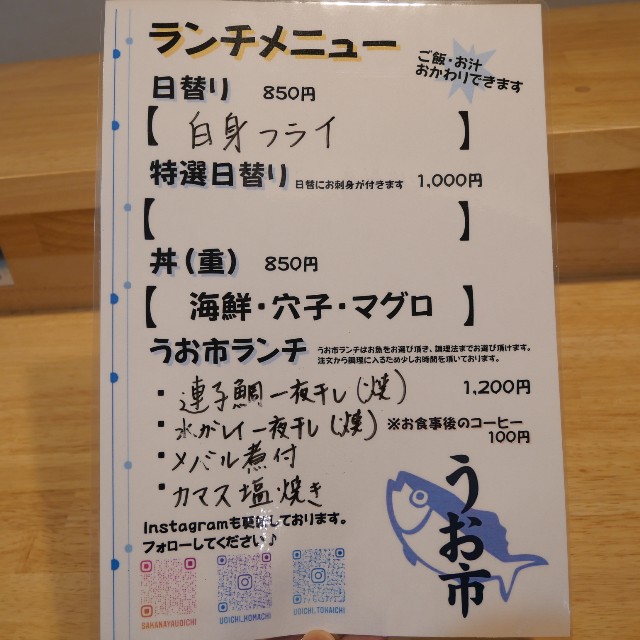 ランチメニュー
ご飯・お汁
おかわりできます
日替り 850円
【 白身フライ 】
特選日替り 日替にお刺身が付きます 1,000円
【 】
丼(重) 850円
【 海鮮・穴子・マグロ 】
うお市ランチ うお市ランチはお魚をお選び頂き、調理法までお選び頂けます。
注文から調理に入るため少しお時間を頂いております。
・連子鯛一夜干し(焼) 1,200円
・水ガレイ一夜干し(焼) ※お食事後のコーヒー
100円
・メバル煮付
・カマス塩焼き
Instagramも更新しております。
フォローしてください♪
うお市
SAKANAYAUOICHI
UOICHI_HOMACHI
UOICHI_TOKAICHI